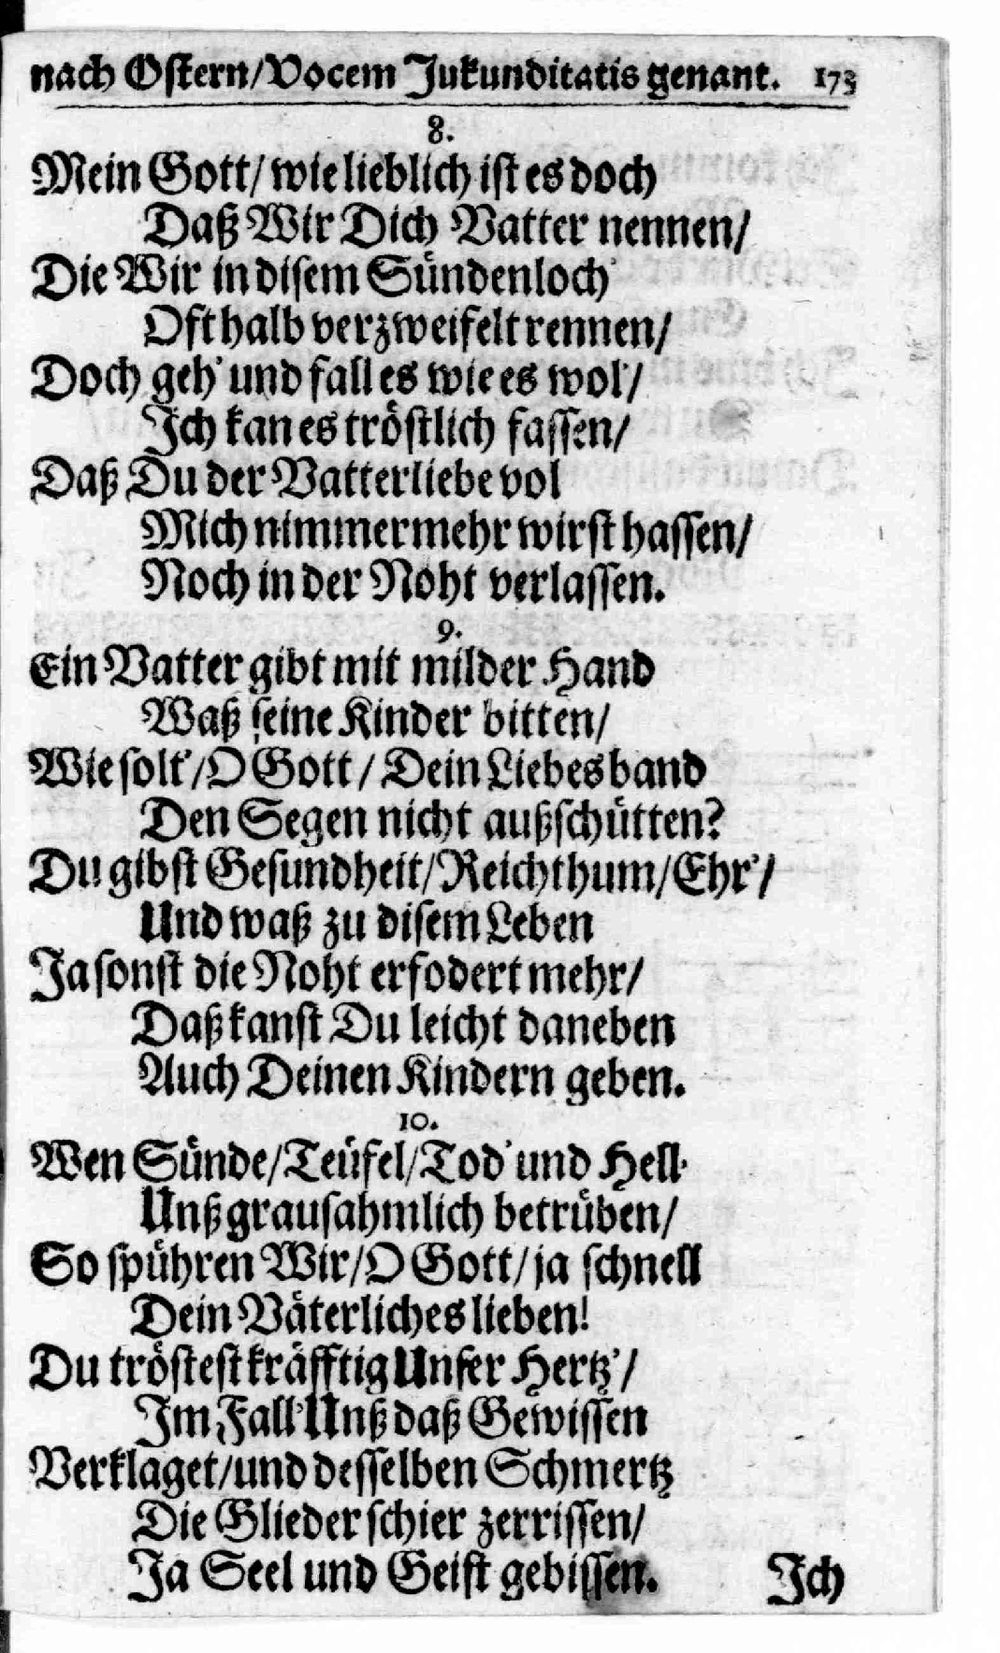 nach Ostern/Vocem Jukunditatis genant. 173
8.
Mein Gott/ wie lieblich ist es doch
Daß Wir Dich Vatter nennen/
Die Wir in disem Sündenloch'
Oft halb verzweifelt rennen/
Doch geh' und fall es wie es wol'/
Ich kan es tröstlich fassen/
Daß Du der Vatterliebe vol
Mich nimmermehr wirst hassen/
Noch in der Noht verlassen.
9.
Ein Vatter gibt mit milder Hand
Waß seine Kinder bitten/
Wie solt'/O Gott/ Dein Liebesband
Den Segen nicht außschütten?
Du gibst Gesundheit/Reichthum/Ehr'/
Und waß zu disem Leben
Ja sonst die Noht erfodert mehr/
Daß kanst Du leicht daneben
Auch Deinen Kindern geben.
10.
Wen Sünde/Teüfel/Tod' und Hell'
Unß grausahmlich betrüben/
So spühren Wir/O Gott/ja schnell
Dein Väterliches lieben!
Du tröstest kräfftig Unser Hertz'/
Im Fall' Unß daß Gewissen
Verklaget/und desselben Schmertz
Die Glieder schier zerrissen/
Ja Seel und Geist gebissen.
Ich